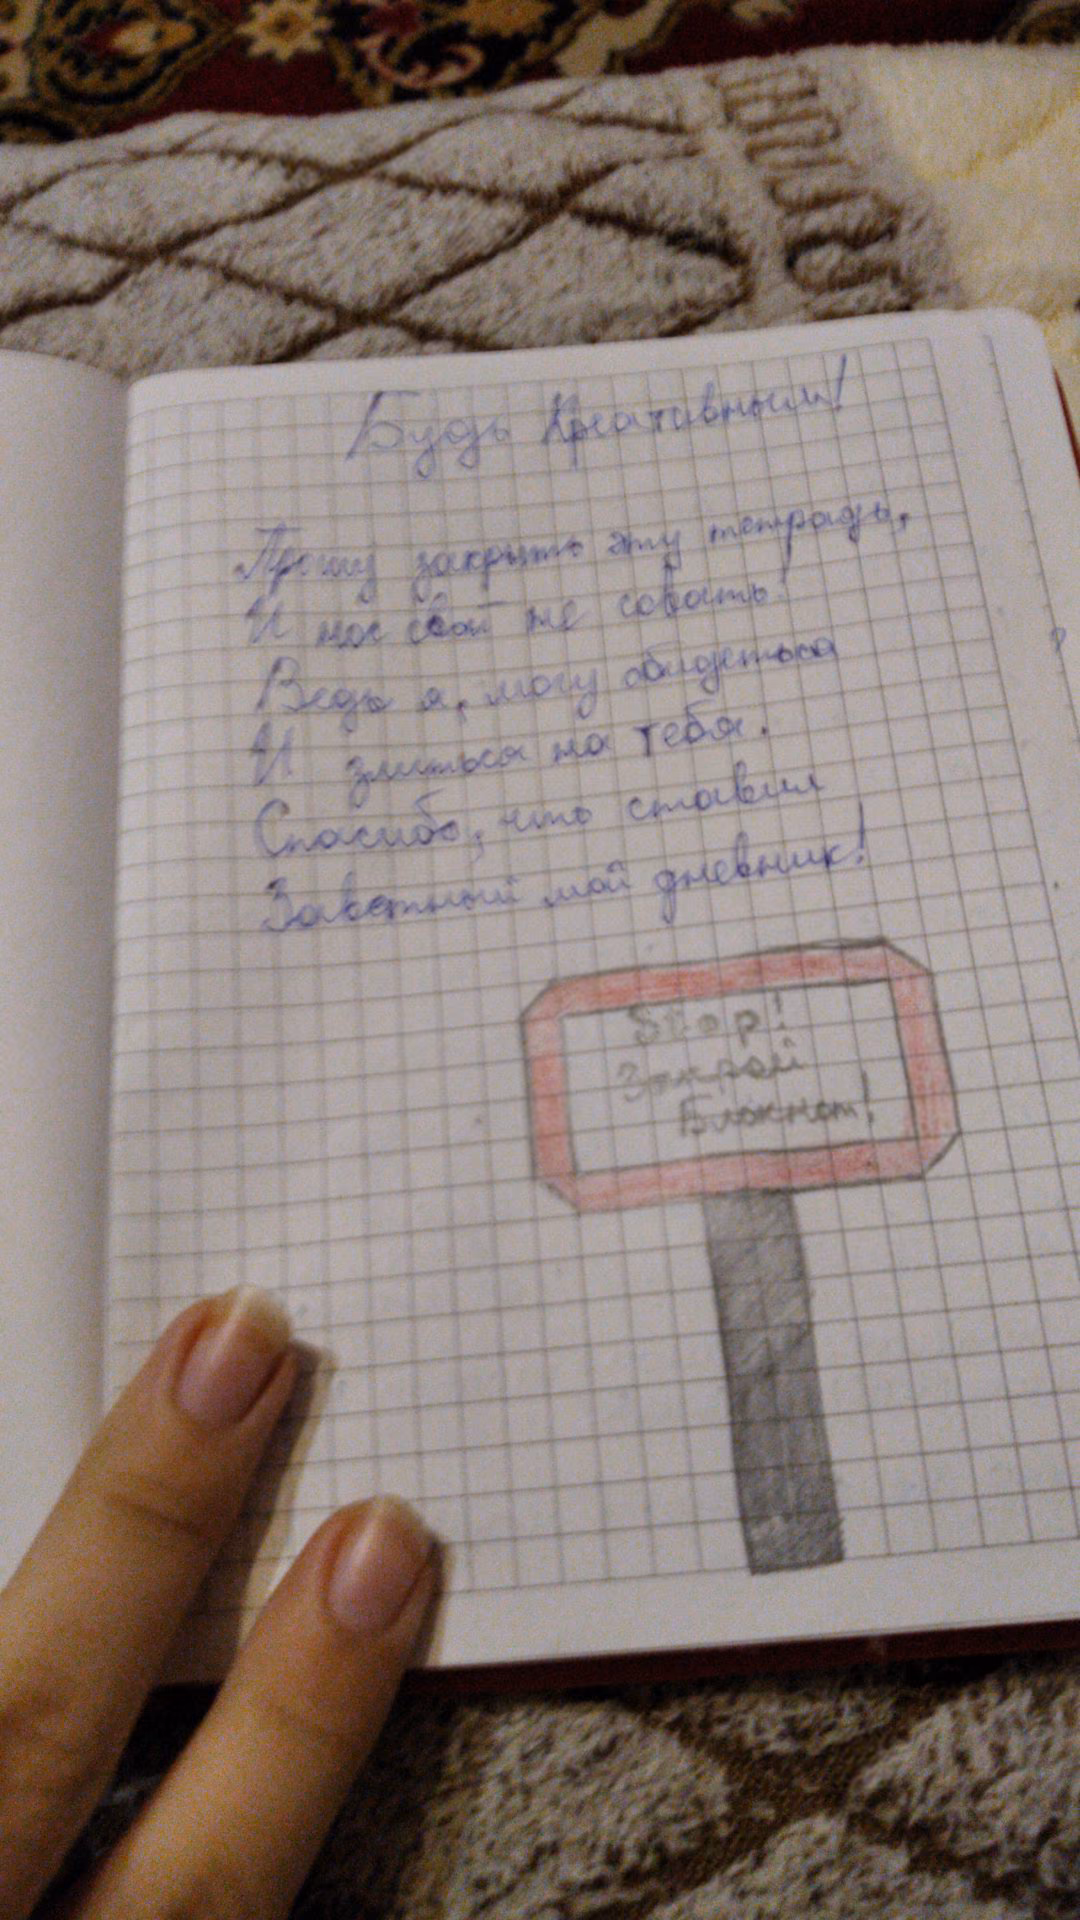 Будь Креативным!
Прошу закрыть эту тетрадь,
И нос свой не совать!
Ведь я, могу обидеться
И злиться на тебя.
Спасибо, что ставил
Заветный мой дневник!
Stop!
Закрой
Блокнот!